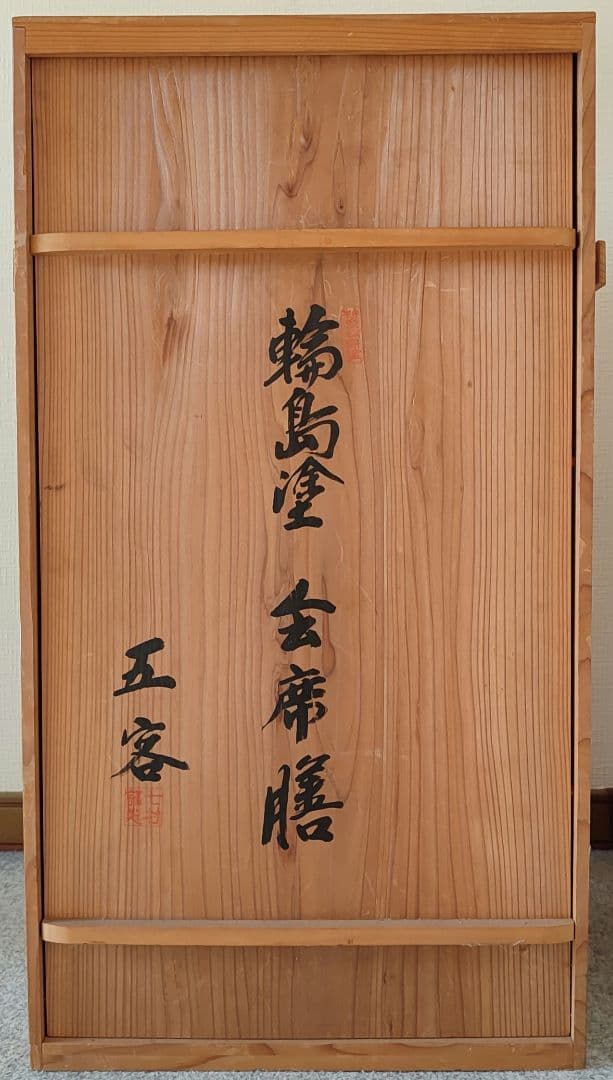 輪島塗 会席膳
五客